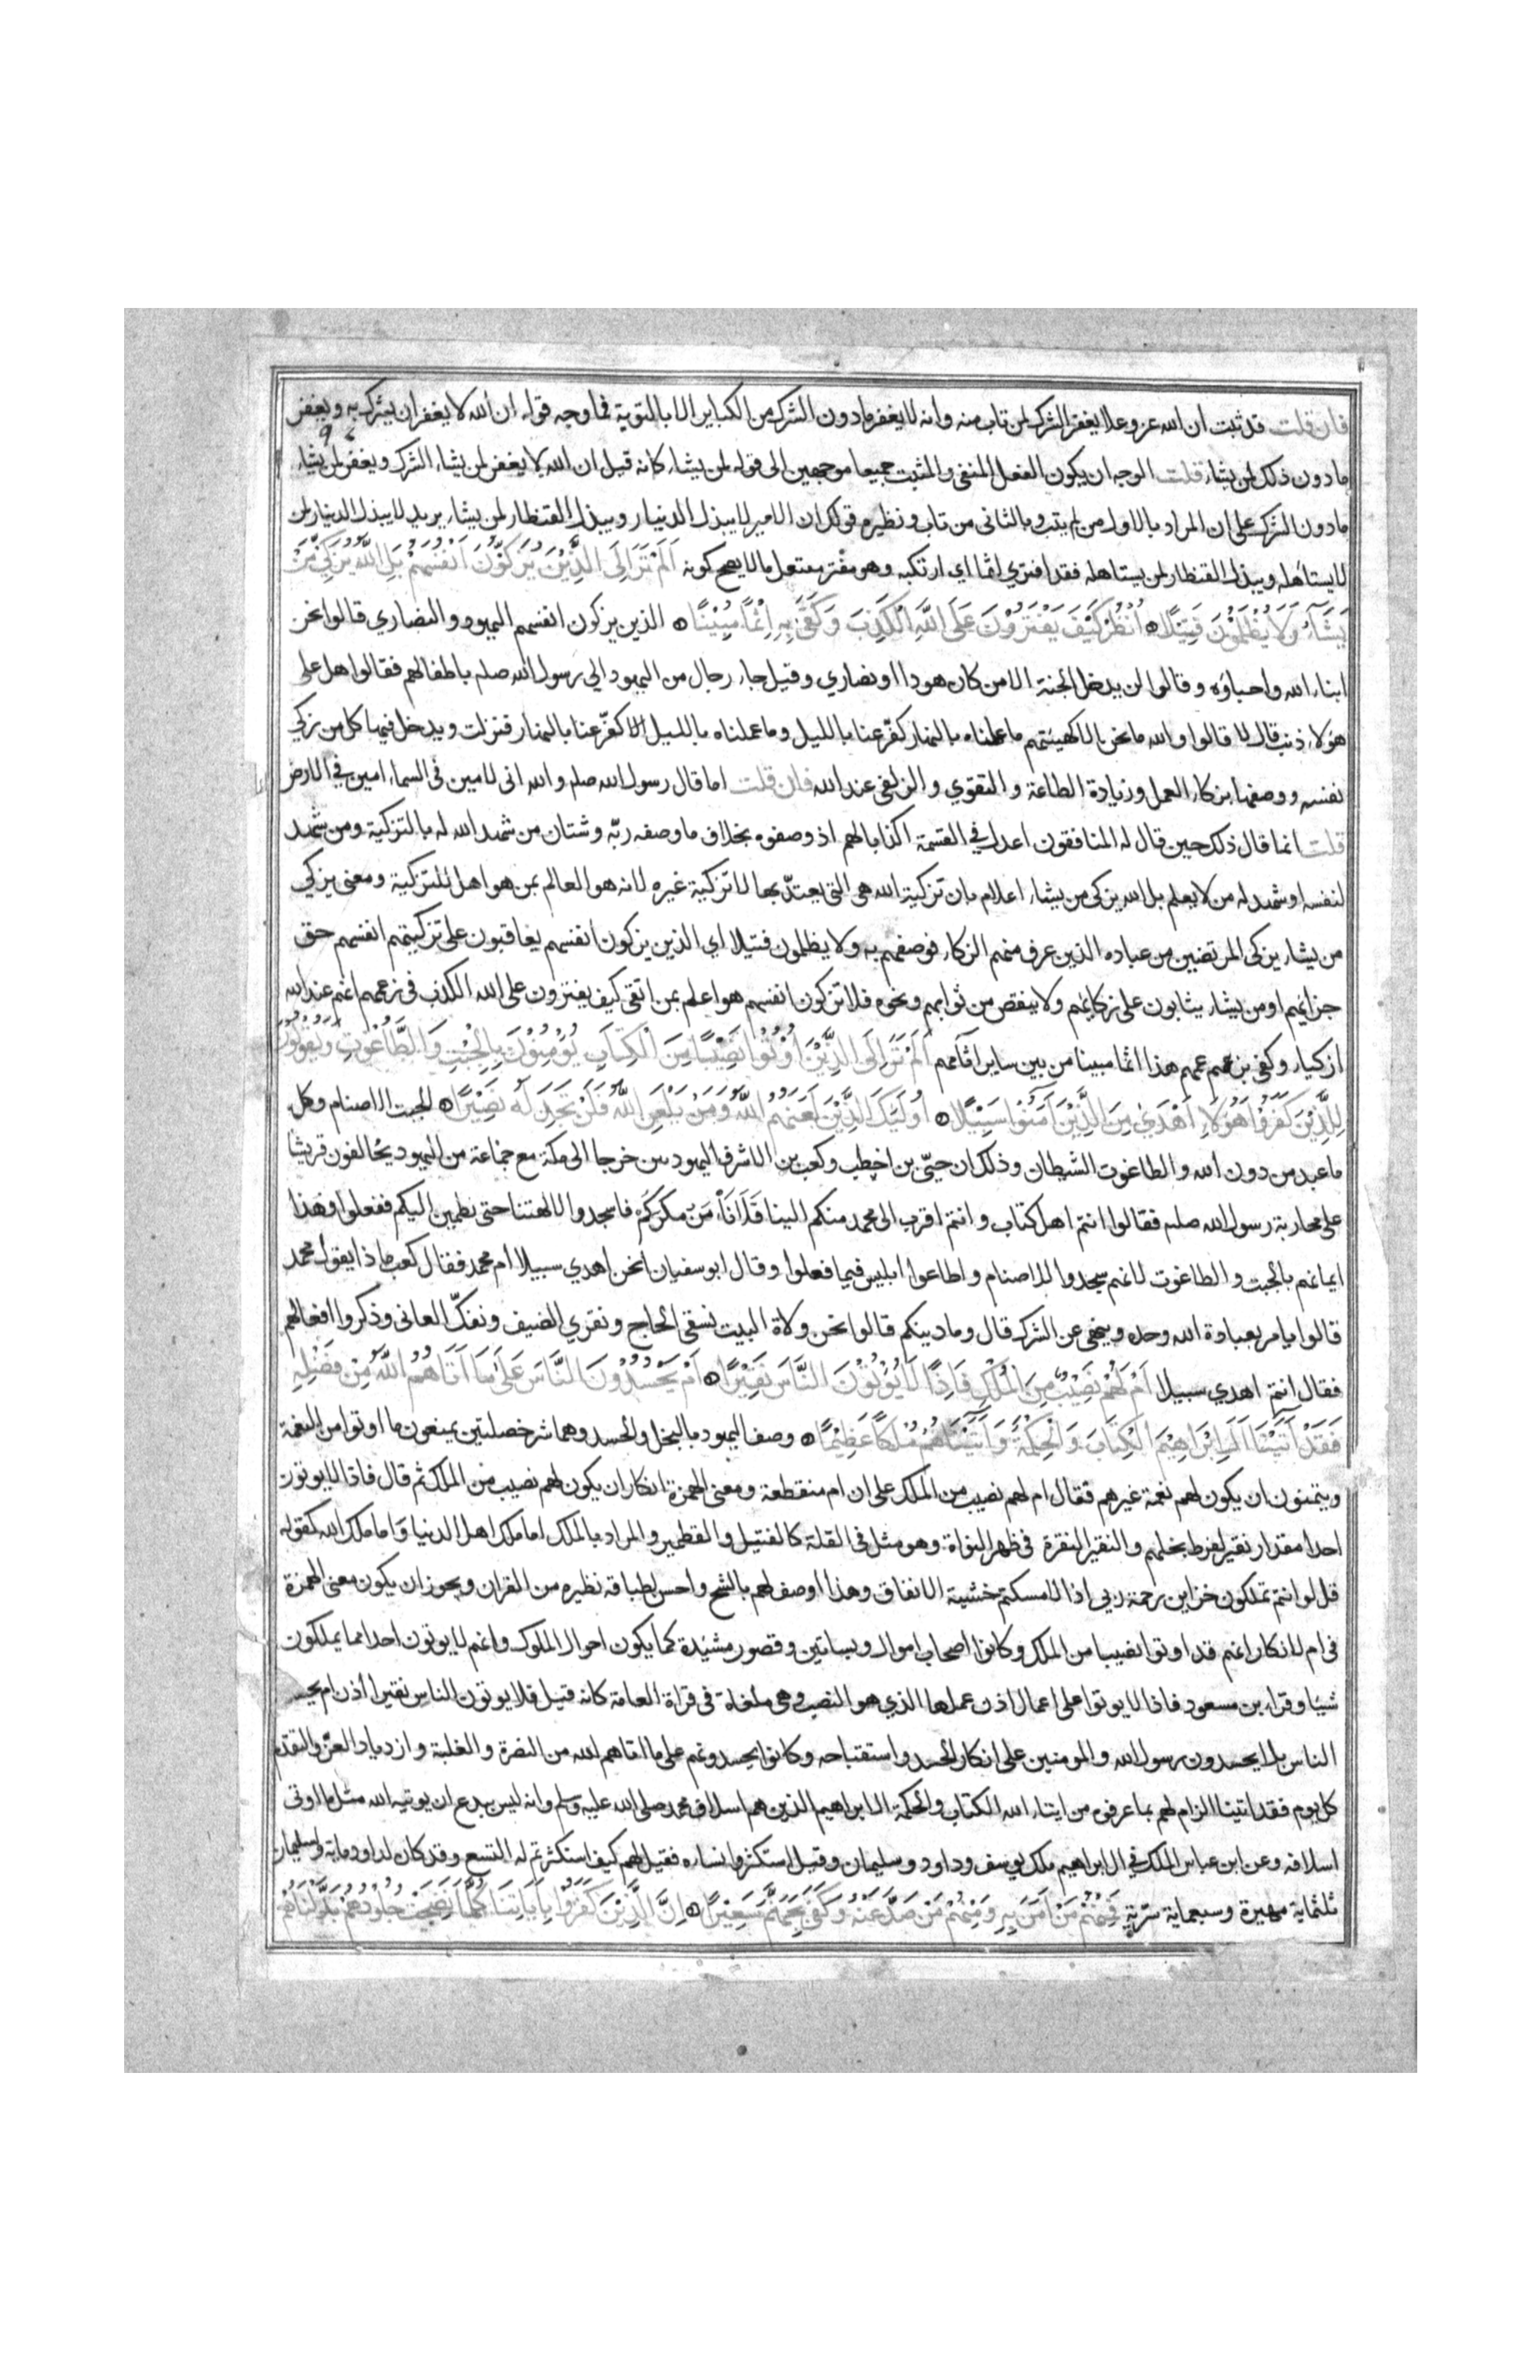 فان قلت قد ثبت ان الله عز وعلا يغفر الشرك لمن تاب منه وانه لا يغفر ما دون الشرك من الكباير الا بالتوبة فما وجه قوله ان الله لا يغفر ان يشرك به ويغفر
ما دون ذلك لمن يشاء قلت الوجه ان يكون الفعل المنفى والمثبت جميعا موجهين الى قوله لمن يشاء كانه قيل ان الله لا يغفر لمن يشاء الشرك ويغفر لمن يشاء
ما دون الشرك على ان المراد بالاول من لم يتب وبالثانى من تاب ونظيره قولك ان الامير لا يبذل الدينار ويبذل القنطار لمن يشاء يريد لا يبذل الدينار لمن
لا يستاهله ويبذل القنطار لمن يستاهله فقد افترى اثما اى ارتكبه وهو مفتر مفتعل ما لا يصح كونه اَلَمْ تَرَ اِلَى الَّذِيْنَ يُزَكُّوْنَ اَنْفُسَهُمْ بَلِ اللّٰهُ يُزَكِّيْ مَنْ
يَشَآءُ وَلَا يُظْلَمُوْنَ فَتِيْلًا اُنْظُرْ كَيْفَ يَفْتَرُوْنَ عَلَى اللّٰهِ الْكَذِبَ وَكَفَى بِهِ اِثْمًا مُبِيْنًا الذين يزكون انفسهم اليهود والنصاري قالوا نحن
ابناء الله واحباؤه وقالوا لن يدخل الجنة الا من كان هودا او نصاري وقيل جاء رجال من اليهود الي رسول الله صلم باطفالهم فقالوا هل على
هؤلاء ذنب قال لا قالوا والله ما نحن الا كهيئتهم ما عملناه بالنهار كفّر عنا بالليل وما عملناه بالليل كفّر عنا بالنهار فنزلت ويدخل فيها كل من زكي
نفسه ووصفها بزكاء العمل وزيادة الطاعة والتقوي والزلفى عند الله فان قلت اما قال رسول الله صلم والله انى لامين فى السماء امين في الارض
قلت انما قال ذلك حين قال له المنافقون اعدل في القسمة اكذابا لهم اذ وصفوه بخلاف ما وصفه ربّه وشتان من شهد الله له بالتزكية ومن شهد
لنفسه او شهد له من لا يعلم بل الله يزكى من يشاء اعلام بان تزكية الله هى التى يعتدّ بها لا تزكية غيره لانه هو العالم بمن هو اهل للتزكية ومعنى يزكي
من يشاء يزكى المرتضين من عباده الذين عرف منهم الزكاء فوصفهم به ولا يظلمون فتيلا اي الذين يزكون انفسهم يعاقبون على تزكيتهم انفسهم حق
جزائهم او من يشاء يثابون على زكائهم ولا ينقص من ثوابهم ونحوه فلا تزكوا انفسهم هو اعلم بمن اتقى كيف يفترون على الله الكذب فى زعمهم انهم عند الله
ازكياء وكفى بزعمهم هذا اثما مبينا من بين ساير آثامهم اَلَمْ تَرَ اِلَى الَّذِيْنَ اُوْتُوْا نَصِيْبًا مِنَ الْكِتَابِ يُؤْمِنُوْنَ بِالْجِبْتِ وَالطَّاغُوْتِ وَيَقُوْلُوْنَ
لِلَّذِيْنَ كَفَرُوْا هٰؤُلَاءِ اَهْدَىٰ مِنَ الَّذِيْنَ آمَنُوْا سَبِيْلًا اُولٰئِكَ الَّذِيْنَ لَعَنَهُمُ اللّٰهُ وَمَنْ يَلْعَنِ اللّٰهُ فَلَنْ تَجِدَ لَهُ نَصِيْرًا الجبت الاصنام وكل
ما عبد من دون الله والطاغوت الشيطان وذلك ان حيّى بن اخطب وكعب بن الاشرف اليهوديين خرجا الى مكة مع جماعة من اليهود يحالفون قريشا
على محاربة رسول الله صلم فقالوا انتم اهل كتاب وانتم اقرب الى محمد منكم الينا فلا نأمن مكركم فاسجدوا لالهتنا حتى نطمين اليكم ففعلوا فهذا
ايمانهم بالجبت والطاغوت لانهم سجدوا للاصنام واطاعوا ابليس فيما فعلوا وقال ابو سفيان انحن اهدي سبيلا ام محمد فقال كعب ما ذا يقول محمد
قالوا يامر بعبادة الله وحده وينهى عن الشرك قال وما دينكم قالوا نحن ولاة البيت نسقى الحاج ونقري الضيف ونفكّ العانى وذكروا افعالهم
فقال انتم اهدي سبيلا اَمْ لَهُمْ نَصِيْبٌ مِنَ الْمُلْكِ فَاِذًا لَا يُؤْتُوْنَ النَّاسَ نَقِيْرًا اَمْ يَحْسُدُوْنَ النَّاسَ عَلَى مَا آتَاهُمُ اللّٰهُ مِنْ فَضْلِهِ
فَقَدْ آتَيْنَا آلَ اِبْرَاهِيْمَ الْكِتَابَ وَالْحِكْمَةَ وَآتَيْنَاهُمْ مُلْكًا عَظِيْمًا وصف اليهود بالبخل والحسد وهما شر خصلتين يمنعون ما اوتوا من النعمة
ويتمنون ان يكون لهم نعمة غيرهم فقال ام لهم نصيب من الملك على ان ام منقطعة ومعنى الهمزة انكار ان يكون لهم نصيب من الملك ثم قال فاذا لا يوتون
احدا مقدار نقير لفرط بخلهم والنقير النقرة فى ظهر النواة وهو مثل فى القلة كالفتيل والقطمير والمراد بالملك اما ملك اهل الدنيا واما ملك الله كقوله
قل لو انتم تملكون خزاين رحمة ربي اذا لامسكتم خشية الانفاق وهذا اوصف لهم بالشح واحسن لطباقه نظيره من القران ويجوز ان يكون معنى الهمزة
فى ام لانكار انهم قد اوتوا نصيبا من الملك وكانوا اصحاب اموال وبساتين وقصور مشيدة كما يكون احوال الملوك وانهم لا يوتون احدا مما يملكون
شيئا وقراء بن مسعود فاذا لا يوتوا على اعمال اذن عملها الذي هو النصب وهى ملغاة فى قراة العامة كانه قيل فلا يوتون الناس نقيرا اذن ام يحسدون
الناس بل ايحسدون رسول الله والمومنين على انكار الحسد واستقباحه وكانوا يحسدونهم على ما اتاهم الله من النصرة والغلبة وازدياد العزّ والتقدم
كل يوم فقد اتينا الزام لهم بما عرفوه من ايتاء الله الكتاب والحكمة ال ابراهيم الذين هم اسلاف محمد صلى الله عليه وسلم وانه ليس ببدع ان يوتيه الله مثل ما اوتى
اسلافه وعن ابن عباس الملك في ال ابراهيم ملك يوسف وداود وسليمان وقيل استكثروا نساءه فقيل لهم كيف استكثرتم له التسع وقد كان لداود ماية ولسليمان
ثلثماية مهيرة وسبعماية سرّية فَمِنْهُمْ مَنْ آمَنَ بِهِ وَمِنْهُمْ مَنْ صَدَّ عَنْهُ وَكَفَى بِجَهَنَّمَ سَعِيْرًا اِنَّ الَّذِيْنَ كَفَرُوْا بِآيَاتِنَا كُلَّمَا نَضِجَتْ جُلُوْدُهُمْ بَدَّلْنَاهُمْ